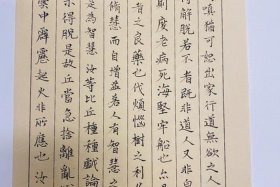 瞋猶可恕出家行道無欲之人
得解脫若不者既非道人又非
則度老病死海堅牢船也亦
者之良藥也伐煩惱樹之利
修慧而自增益若人有智慧之
是為智慧汝等比丘種種戲論
得脫是故丘當急捨離亂
雲中霹靂起火非所應也汝